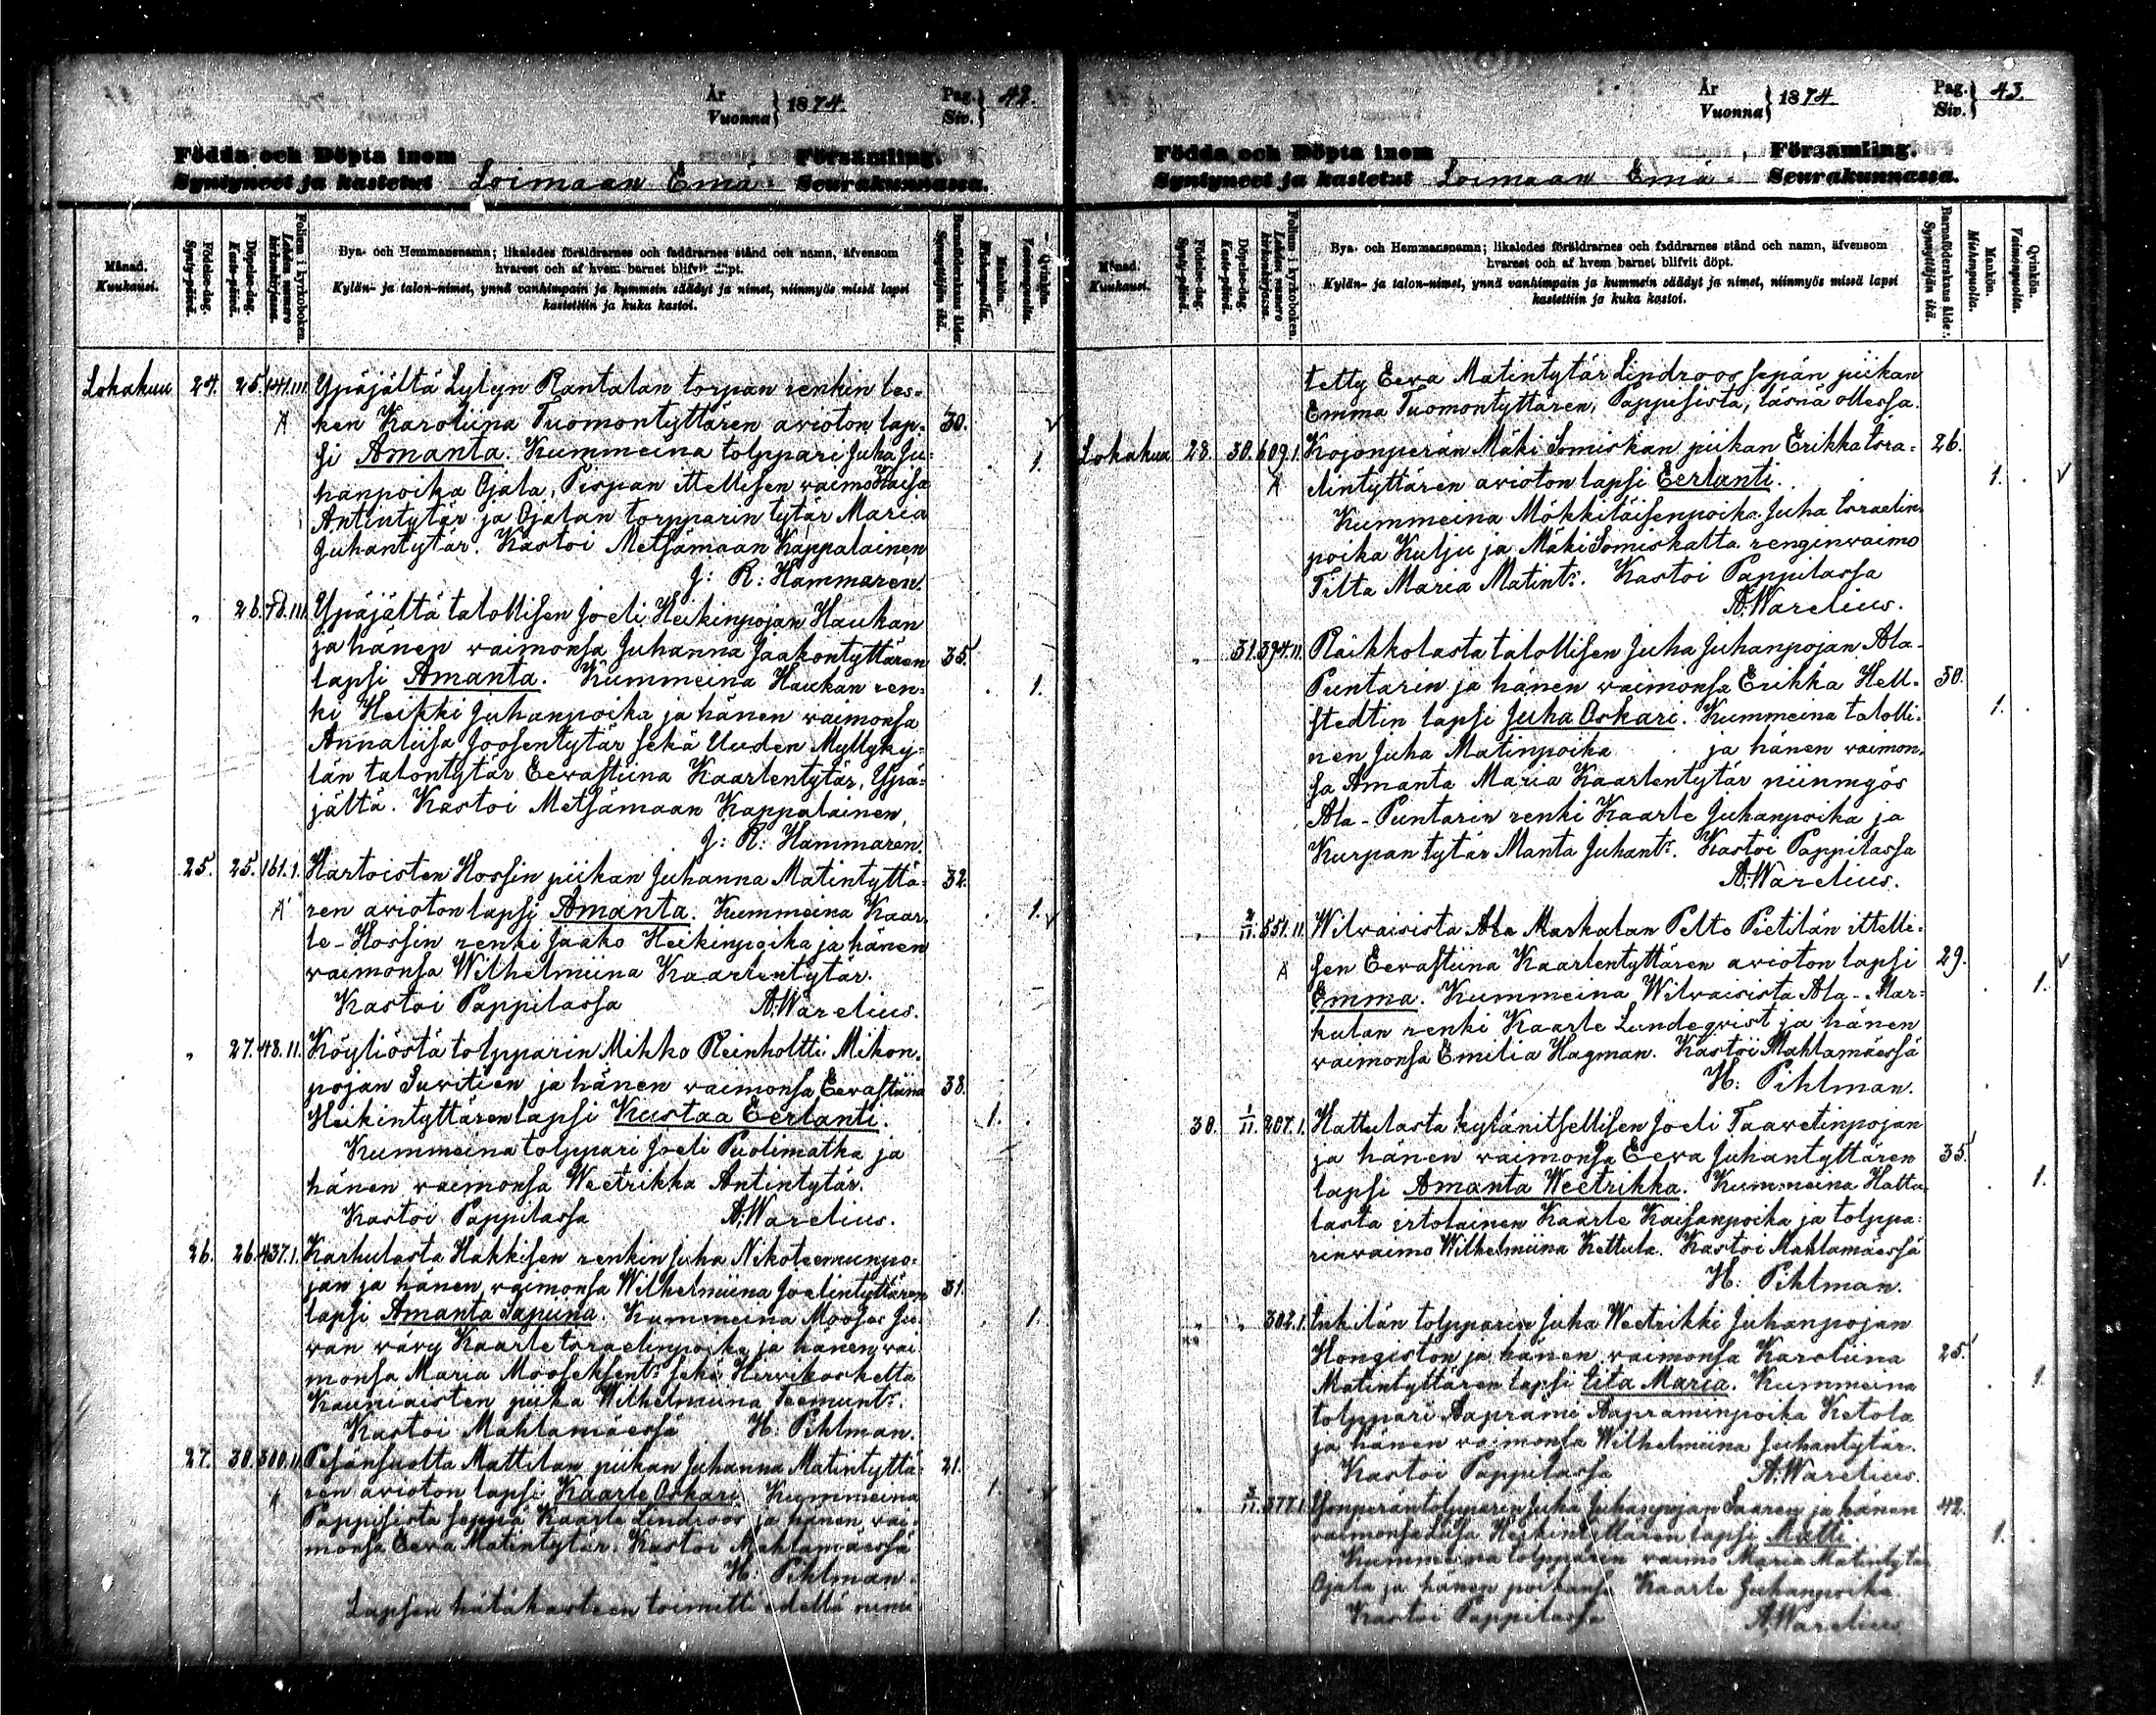 År
Vuonna } 1874. Pag.
Siv. } 42.
Födda och Döpta inom Församling.
Syntyneet ja kastetut Loimaan Emä- Seurakunnassa.
Månad.
Kuukausi.
Födelse-dag.
Synty-päivä.
Döpelse-dag.
Kaste-päivä.
Folium i kyrkoboken.
Lehden numero kirkonkirjassa.
Bya- och Hemmansnamn; likaledes föräldrarnes och faddrarnes stånd och namn, äfvensom
hvarest och af hvem barnet blifvit döpt.
Kylän- ja talon-nimet, ynnä vanhimpain ja kummein säädyt ja nimet, niinmyös missä lapsi
kastettiin ja kuka kastoi.
Barnaföderskans ålder.
Synnyttäjän ikä.
Mankön.
Miehenpuolia.
Qvinkön.
Vaimonpuolia.
Lokakuu 24. 25. 141.III Ypäjältä Lylyn Rantalan torpan renkin les-
ken Karoliina Tuomontyttären avioton lap- 30.
si Amanta. Kummeina tolppari Juha Ju- 1.
hanpoika Ojala, Pispan ittellisen vaimo Kaisa
Antintytär ja Ojalan torpparin tytär Maria
Juhantytär. Kastoi Metsämaan Kappalainen
J: R: Hammarén.
" 26. 78.III. Ypäjältä talollisen Joeli Heikinpojan Haukan
ja hänen vaimonsa Juhanna Jaakontyttären 35.
lapsi Amanta. Kummeina Haukan ren- 1.
ki Heikki Juhanpoika ja hänen vaimonsa
Annaliisa Joosentytär sekä Uuden Myllyky-
län talontytär Eevastiina Kaarlentytär, Ypä-
jältä. Kastoi Metsämaan Kappalainen,
J: R: Hammarén.
25. 25. 161.I. Hartoisten Hossin piikan Juhanna Matintyttä- 32.
ren avioton lapsi Amanta. Kummeina Kaar- 1.
le-Hossin renki Jaako Heikinpoika ja hänen
vaimonsa Wilhelmiina Kaarlentytär.
Kastoi Pappilassa A. Warelius.
" 27. 48.II. Köyliöstä tolpparin Mikko Reinholtti Mikon-
pojan Suvitien ja hänen vaimonsa Eevastiina 38.
Heikintyttären lapsi Kustaa Eerlanti. 1.
Kummeina tolppari Joeli Puolimatka ja
hänen vaimonsa Weetrikka Antintytär.
Kastoi Pappilassa A. Warelius.
26. 26. 437.I. Karhulasta Hakkisen renkin Juha Nikoteemunpo-
jan ja hänen vaimonsa Wilhelmiina Joelintyttären 31.
lapsi Amanta Sapiina. Kummeina Moosas Ju- 1.
van vävy Kaarle Israelinpoika ja hänen vai-
monsa Maria Mooseksent: sekä Hirvikoskelta
Kauniaisten piika Wilhelmiina Teemunt:.
Kastoi Mahlamäessä H: Pihlman.
27. 30. 300.II. Pesänsuolta Mattilan piikan Juhanna Matintyttä- 21.
ren avioton lapsi Kaarle Oskari. Kummeina 1.
Pappisista seppä Kaarle Lindroos ja hänen vai-
monsa Eeva Matintytär. Kastoi Mahlamäessä
H: Pihlman.
Lapsen hätäkasteen toimitti edellä nimi
År
Vuonna } 1874. Pag.
Siv. } 43.
Födda och Döpta inom Församling.
Syntyneet ja kastetut Loimaan Emä- Seurakunnassa.
Månad.
Kuukausi.
Födelse-dag.
Synty-päivä.
Döpelse-dag.
Kaste-päivä.
Folium i kyrkoboken.
Lehden numero kirkonkirjassa.
Bya- och Hemmansnamn; likaledes föräldrarnes och faddrarnes stånd och namn, äfvensom
hvarest och af hvem barnet blifvit döpt.
Kylän- ja talon-nimet, ynnä vanhimpain ja kummein säädyt ja nimet, niinmyös missä lapsi
kastettiin ja kuka kastoi.
Barnaföderskans ålder.
Synnyttäjän ikä.
Mankön.
Miehenpuolia.
Qvinkön.
Vaimonpuolia.
tetty Eeva Matintytär Lindroos sepän piikan
Emma Tuomontyttären, Pappisista, läsnä ollessa.
Lokakuu 28. 30. 609.I. Kojonperän Mäki Somiskan piikan Erikka Isra- 26.
elintyttären avioton lapsi Eerlanti. 1.
Kummeina Mökkiläisenpoika Juha Israelin-
poika Kulju ja Mäki Somiskalta renginvaimo
Tilta Maria Matint:. Kastoi Pappilassa
A. Warelius.
" 31. 394.II. Räikkolasta talollisen Juha Juhanpojan Ala-
Puntarin ja hänen vaimonsa Erikka Hell- 30.
stedtin lapsi Juha Oskari. Kummeina talolli- 1.
nen Juha Matinpoika ja hänen vaimon-
sa Amanta Maria Kaarlentytär niinmyös
Ala-Puntarin renki Kaarle Juhanpoika ja
Kurpan tytär Manta Juhant:. Kastoi Pappilassa
A. Warelius.
" 2/11. 551.II. Wilvaisista Ala Markulan Pelto Pietilän ittelli-
sen Eevastiina Kaarlentyttären avioton lapsi 29.
Emma. Kummeina Wilvaisista Ala-Mar- 1.
kulan renki Kaarle Lundeqvist ja hänen
vaimonsa Emilia Hagman. Kastoi Mahlamäessä
H: Pihlman.
30. 1/11. 207.I. Hattulasta kylänitsellisen Joeli Taavetinpojan
ja hänen vaimonsa Eeva Juhantyttären 35.
lapsi Amanta Weetrikka. Kummeina Hattu- 1.
lasta irtolainen Kaarle Kaisanpoika ja tolppa-
rinvaimo Wilhelmiina Kettula. Kastoi Mahlamäessä
H: Pihlman.
" " 302.I. Inkilän tolpparin Juha Weetrikki Juhanpojan
Hongiston ja hänen vaimonsa Karoliina 25.
Matintyttären lapsi Eita Maria. Kummeina 1.
tolppari Aaprami Aapraminpoika Ketola
ja hänen vaimonsa Wilhelmiina Juhantytär.
Kastoi Pappilassa A. Warelius.
" 577.I. tolpparin Juha Juhanpojan Saaren ja hänen 42.
vaimonsa Liisa Heikintyttären lapsi Matti. 1.
Kummeina tolpparin vaimo Maria Matintytär
Ojala ja hänen poikansa Kaarle Juhanpoika
Kastoi Pappilassa A. Warelius